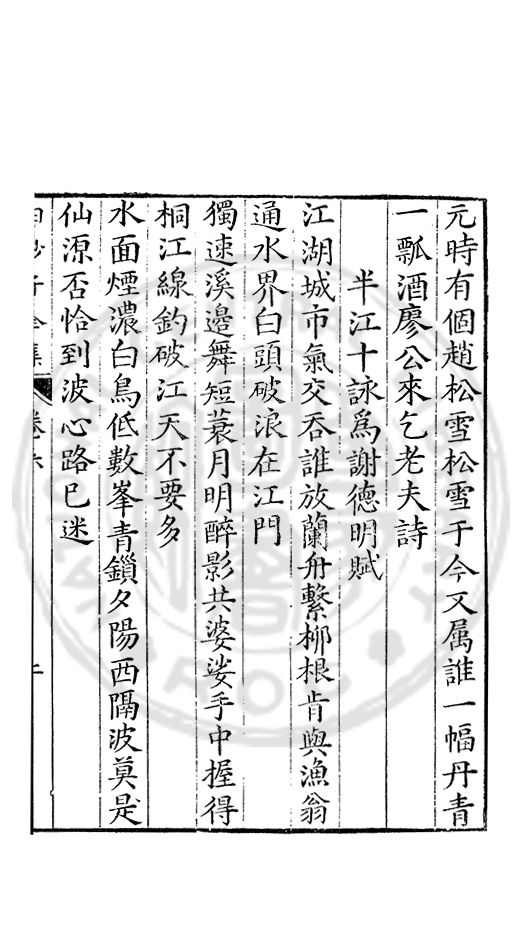 元時有個趙松雪松雪于今又属誰一幅丹青
一瓢酒廖公來乞老夫詩
半江十詠爲謝德明賦
江湖城市氣交吞誰放蘭舟繫栁根肯與漁翁
通水界白頭破浪在江門
獨速溪邊舞短蓑月明醉影共婆娑手中握得
桐江線釣破江天不要多
水面煙濃白鳥低數峯青鎖夕陽西隔波莫是
仙源否恰到波心路已迷